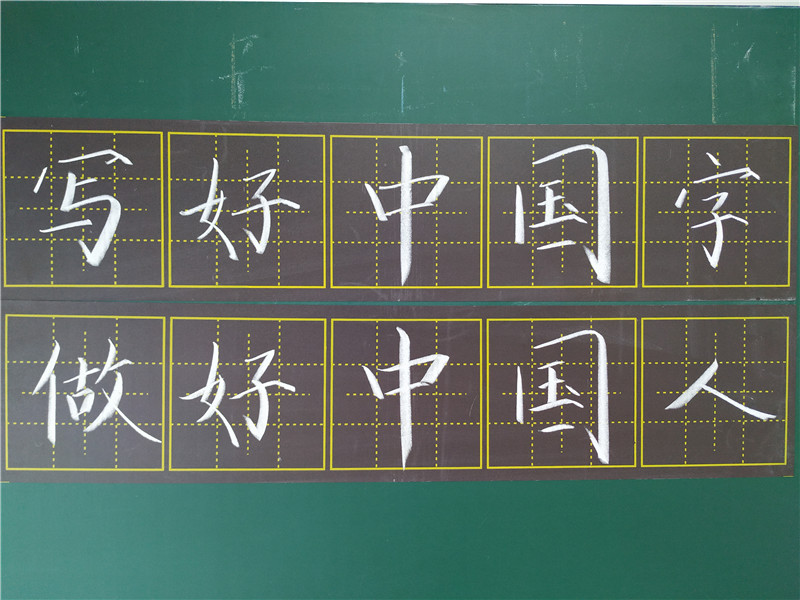 写好中国字
做好中国人